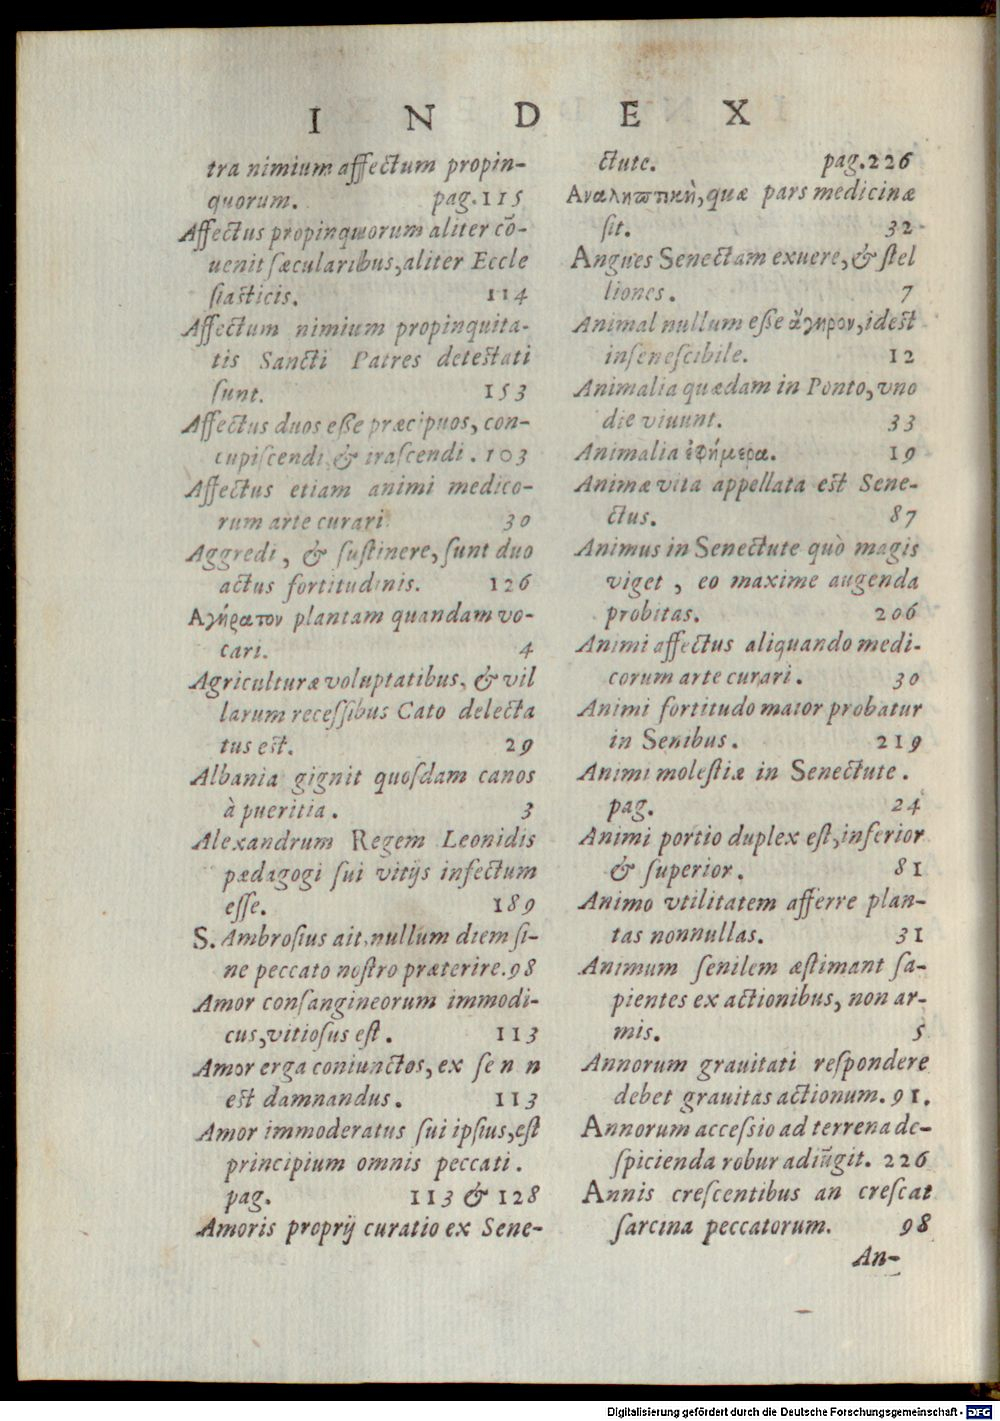 INDEX
tra nimium affectum propin-
quorum. pag.115
Affectus propinquorum aliter cō-
uenit sæcularibus, aliter Eccle
siasticis. 114
Affectum nimium propinquita-
tis Sancti Patres detestati
sunt. 153
Affectus duos eße præcipuos, con-
cupiscendi, & irascendi. 103
Affectus etiam animi medico-
rum arte curari. 30
Aggredi, & sustinere, sunt duo
actus fortitudinis. 126
Αγήρατον plantam quandam vo-
cari. 4
Agriculturæ voluptatibus, & vil
larum recessibus Cato delecta
tus est. 29
Albania gignit quosdam canos
à pueritia. 3
Alexandrum Regem Leonidis
pædagogi sui vitijs infectum
esse. 189
S. Ambrosius ait, nullum diem si-
ne peccato nostro præterire. 98
Amor consangineorum immodi-
cus, vitiosus est. 113
Amor erga coniunctos, ex se n n
est damnandus. 113
Amor immoderatus sui ipsius, est
principium omnis peccati.
pag. 113 & 128
Amoris proprij curatio ex Sene-
ctute. pag.226
Αναληπτικὴ, quæ pars medicinæ
sit. 32
Angues Senectam exuere, & stel
liones. 7
Animal nullum eße ἄγηρον, idest
insenescibile. 12
Animalia quædam in Ponto, vno
die viuunt. 33
Animalia ἐφήμερα. 19
Animæ vita appellata est Sene-
ctus. 87
Animus in Senectute quò magis
viget, eo maxime augenda
probitas. 206
Animi affectus aliquando medi-
corum arte curari. 30
Animi fortitudo maior probatur
in Senibus. 219
Animi molestiæ in Senectute.
pag. 24
Animi portio duplex est, inferior
& superior. 81
Animo vtilitatem afferre plan-
tas nonnullas. 31
Animum senilem æstimant sa-
pientes ex actionibus, non ar-
mis. 5
Annorum grauitati respondere
debet grauitas actionum. 91.
Annorum accessio ad terrena de-
spicienda robur adiūgit. 226
Annis crescentibus an crescat
sarcina peccatorum. 98
An-
Digitalisierung gefördert durch die Deutsche Forschungsgemeinschaft - DFG